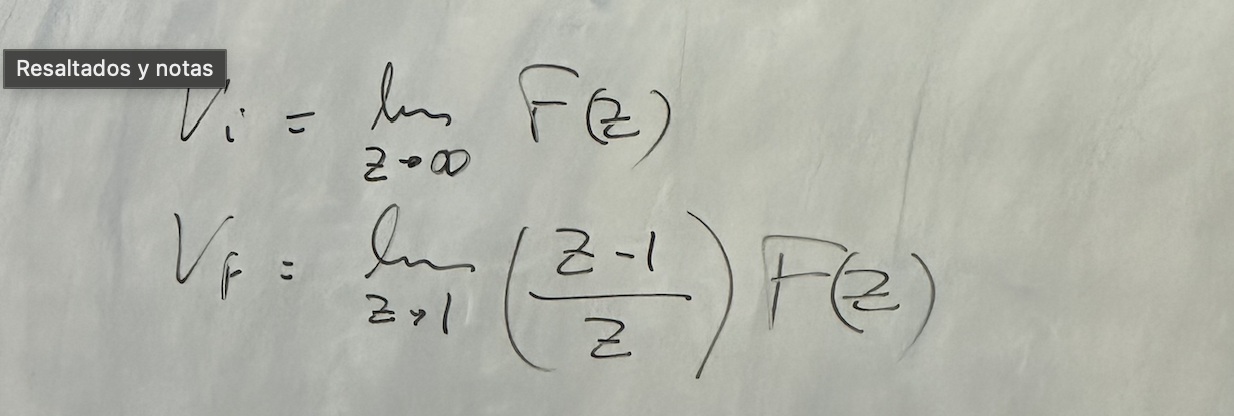 Resaltados y notas
V_i = lim_{z→∞} F(z)
V_F = lim_{z→1} ((z-1)/z) F(z)